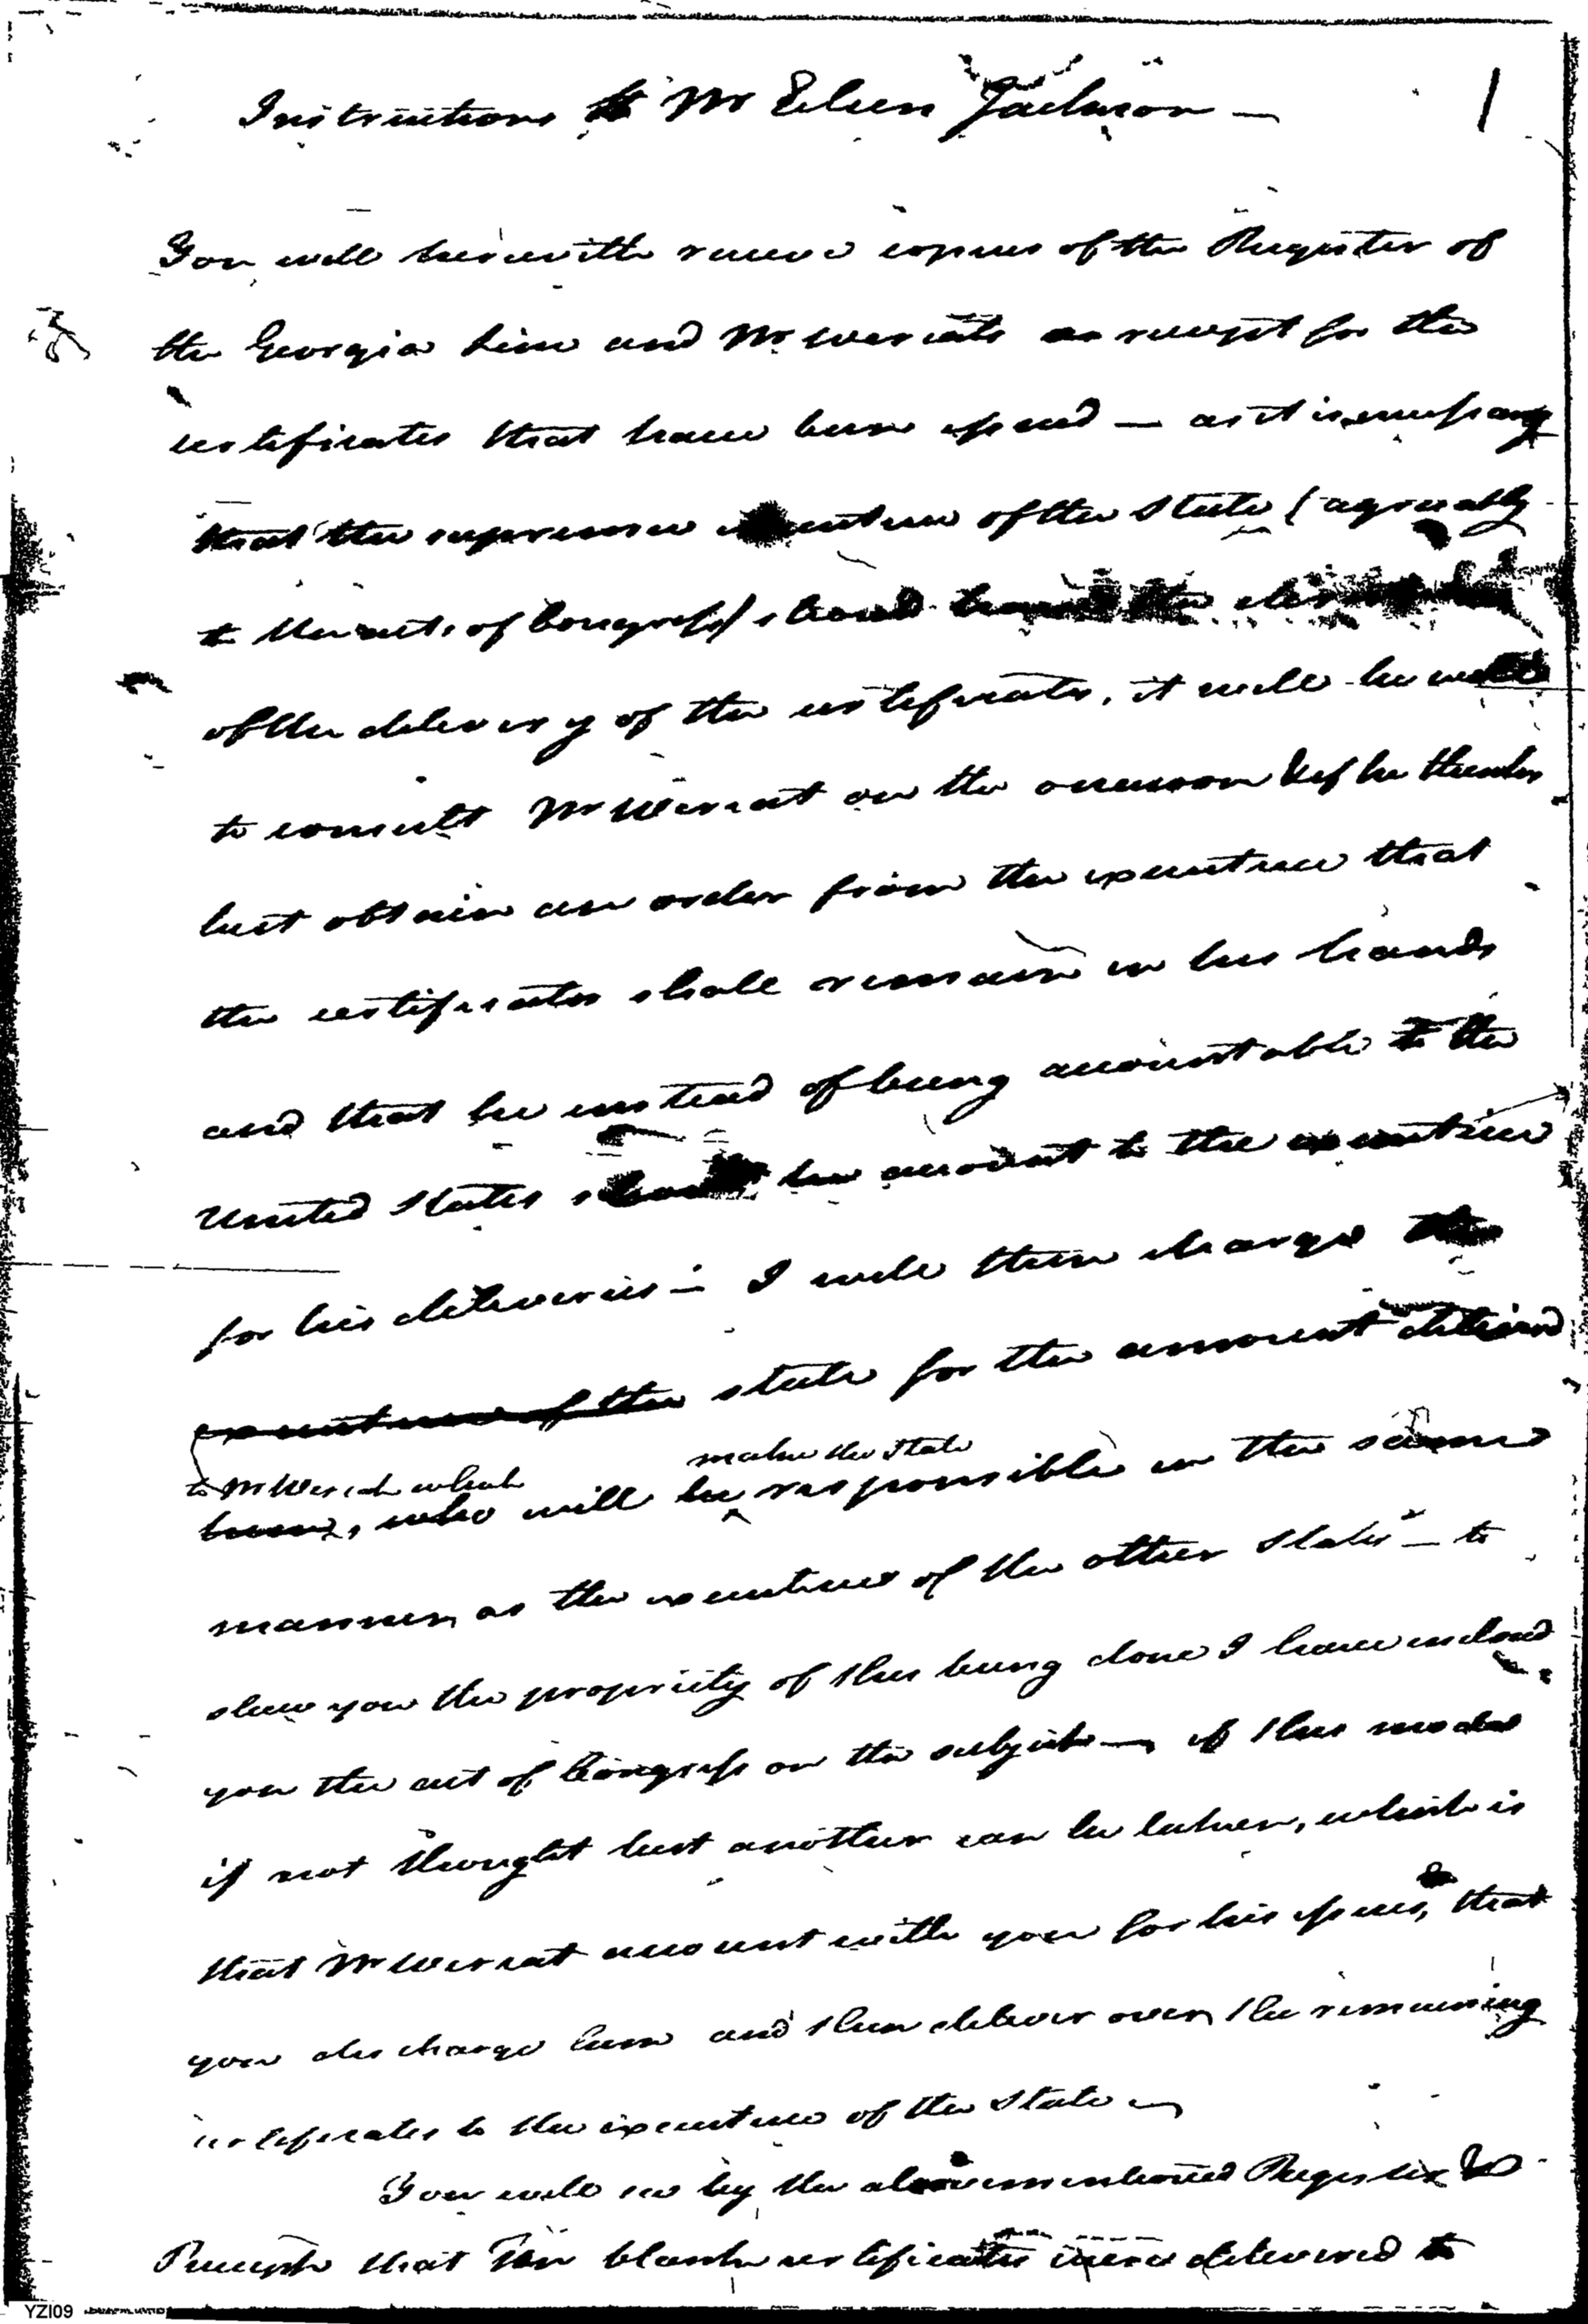 Instructions to Mr Eben Jackson —
1
You will herewith receive copies of the Register of
the Georgia Line and Mr Wereats receipt for the
certificates that have been issued — as it is necessary
that the supreme executive of the State (agreeably
to the acts of Congress) should have the direction
of the delivery of the certificates, it will be well
to consult Mr Wereat on the occasion & if he thinks
best obtain an order from the executive that
the certificates shall remain in his hands
and that he instead of being accountable to the
United States should be account to the executive
for his deliveries — I will then charge the
executive of the state for the amount deliver'd
to Mr Wereat which make the State
him, who will be responsible in the same
manner as the executives of the other States — to
shew you the propriety of this being done I have inclosed
you the act of Congress on the subject — if this mode
is not thought best another can be taken, which is
that Mr Wereat account with you for his issues, that
you discharge him and then deliver over the remaining
certificates to the executive of the State —
You will see by the abovementioned Register &
Receipt that ten blank certificates were delivered to
YZI09